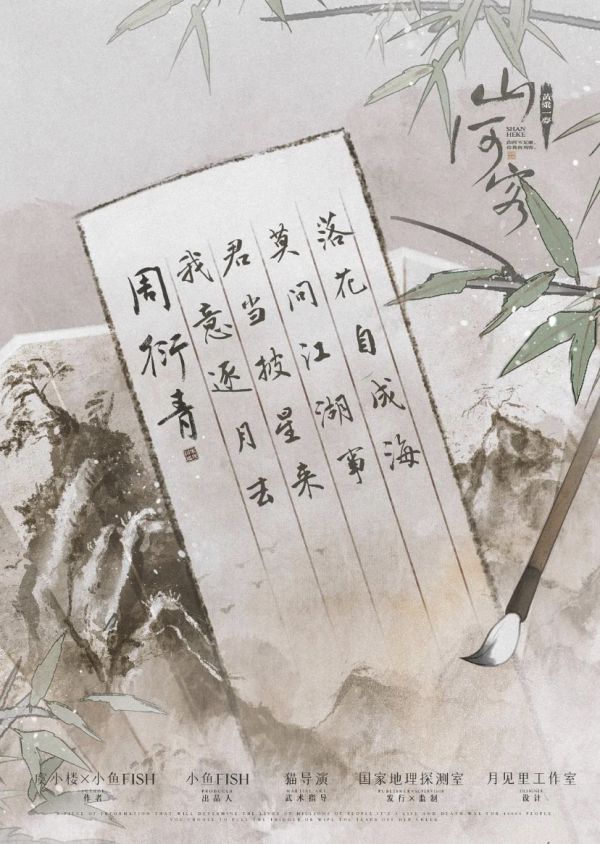 山河客
黄粱一梦
SHAN
HEKE
落花自成海
莫问江湖事
君当披星来
我意逐月去
周衍青
小楼×小鱼FISH
AUTHOR
作者
小鱼FISH
PRODUCER
出品人
猫导演
MARTIAL ART
武术指导
国家地理探测室
PUBLISHER×SUPERVISOR
发行×监制
月见里工作室
DESIGNER
设计
A PIECE OF INFORMATION THAT WILL DETERMINE THE LIVES OF MILLIONS OF PEOPLE IT'S A LIFE AND DEATH WAR FOR PEOPLE
YOU CHOOSE TO PULL THE TRIGGER OR WIPE THE TEARS OFF HER CHEEK